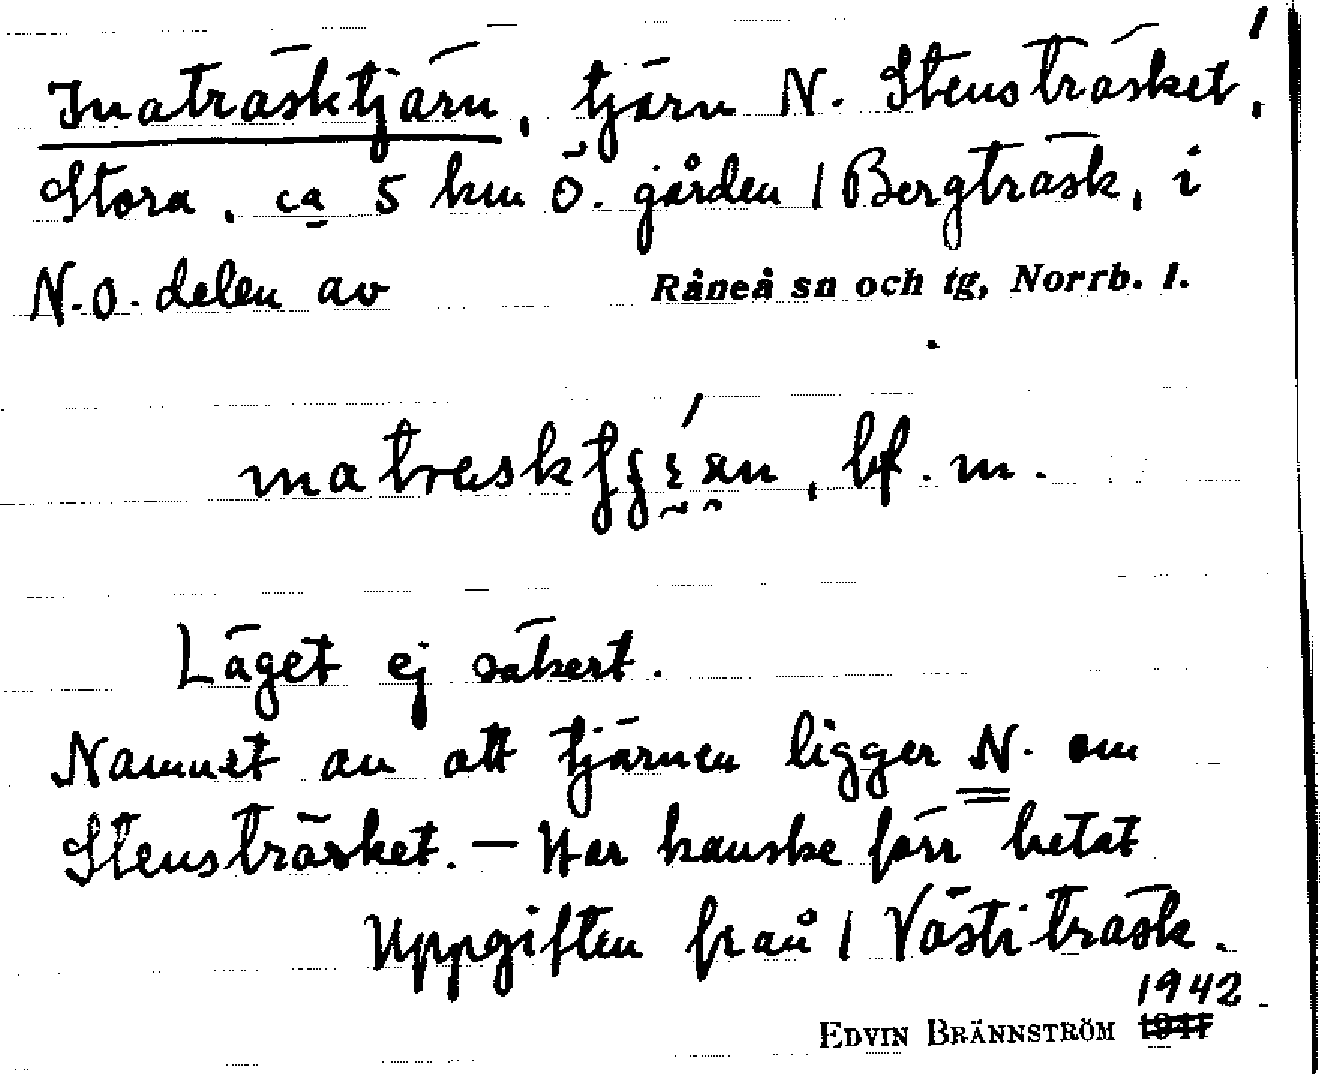 Inaträsktjärn, tjärn N. Stensträsket,
Stora, ca 5 km Ö. gården / Bergträsk, i
N.O. delen av Råneå sn och tg, Norrb. l.
bf. m.
Läget ej säkert.
Namnet av att tjärnen ligger N. om
Stensträsket. — Har kanske förr hetat
Uppgiften från / Västiträsk.
1942
EDVIN BRÄNNSTRÖM 1941